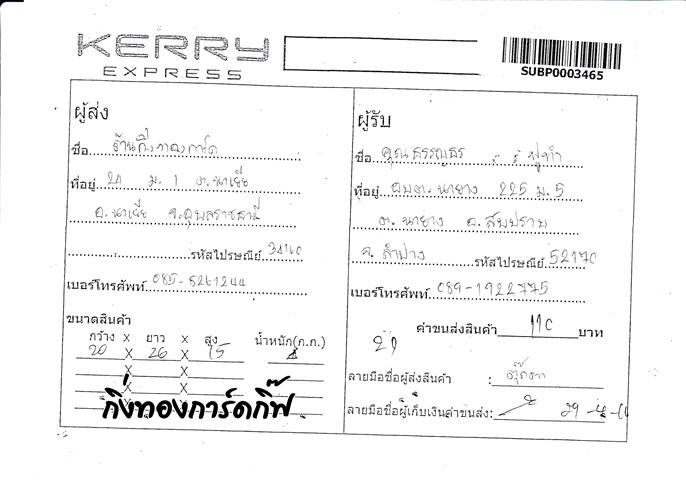 KERRY
EXPRESS
SUBP0003465
ผู้ส่ง
ชื่อ ร้านกิ่งทองการ์ด
ที่อยู่ 21 ม.1 ต.นาเยีย
อ.นาเยีย จ.อุบลราชธานี
รหัสไปรษณีย์ 34160
เบอร์โทรศัพท์ 085-5261244
ขนาดสินค้า
กว้าง X ยาว X สูง น้ำหนัก(ก.ก.)
20 X 26 X 15
X X
X X
X X
กิ่งทองการ์ดกิ๊ฟ
ผู้รับ
ชื่อ คุณธรรญธร
ที่อยู่ อบต.นายาง 225 ม.5
ต.นายาง อ.สบปราบ
จ.ลำปาง รหัสไปรษณีย์ 52170
เบอร์โทรศัพท์ 089-1922775
ค่าขนส่งสินค้า 110 บาท
ลายมือชื่อผู้ส่งสินค้า :
ลายมือชื่อผู้เก็บเงินค่าขนส่ง: